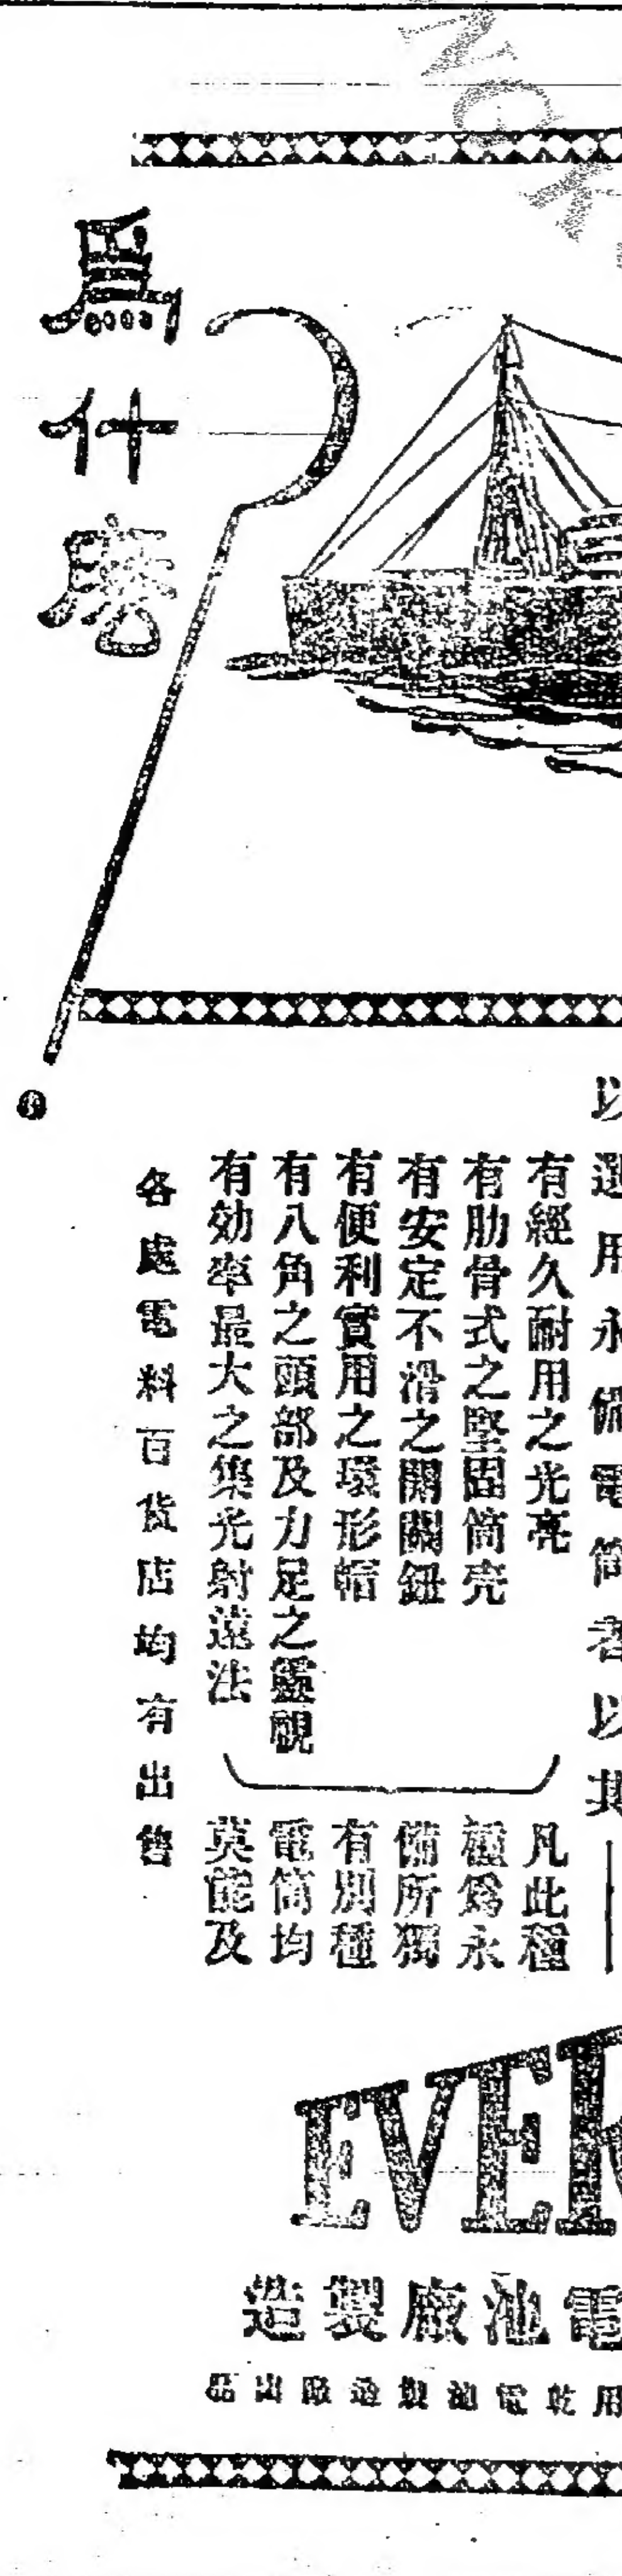 爲什麽
以選用永備電筒者以其
有經久耐用之光亮
有肋骨式之堅固筒壳
有安定不滑之開關鈕
有便利實用之環形帽
有八角之頭部及力足之靈視
有効率最大之集光射遠法
凡此種
種爲永
備所獨
有別種
電筒均
莫能及
各處電料百貨店均有出售
EVER
電池廠製造
用乾電池製造廠出品